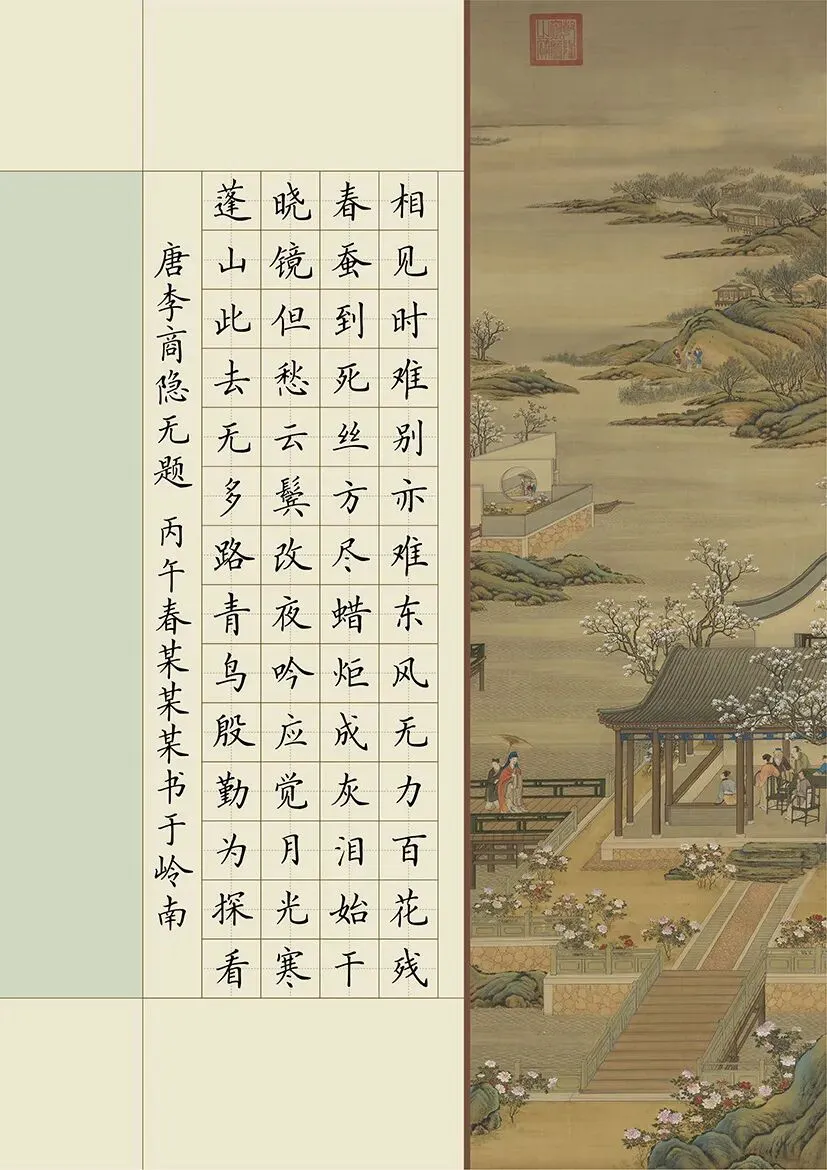 相见时难别亦难东风无力百花残
春蚕到死丝方尽蜡炬成灰泪始干
晓镜但愁云鬓改夜吟应觉月光寒
蓬山此去无多路青鸟殷勤为探看
唐李商隐无题 丙午春某某某书于岭南